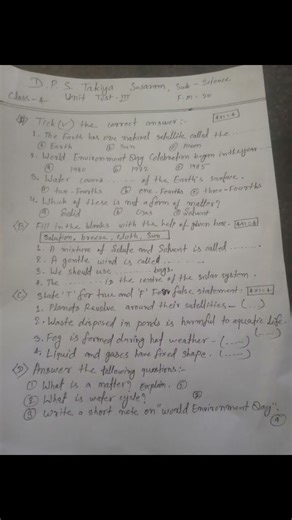 D. P. S. Takiya Sasaram, Sub - Science
Class - 4 Unit Test - III F.M - 50
(A) Tick (✓) the correct answer :- 4x1=4
1. The Earth has one natural satellite called the
(a) Earth (b) Sun (c) Moon
2. World Environment Day Celebration began in the year
(a) 1980 (b) 1973 (c) 1985
3. Water covers ..... of the Earth's surface.
(a) two-fourths (b) one-fourths (c) three-fourths
4. Which of these is not a form of matter?
(a) Solid (b) Gas (c) Solvent
(B) Fill in the blanks with the help of given box. 4x1=4
Solution, breeze, cloth, Sun
1. A mixture of Solute and Solvent is called ......
2. A gentle wind is called .........
3. We should use ........ bags.
4. The ......... is the centre of the solar system.
(C) State 'T' for true and 'F' for false statement. 4x1=4
1. Planets Revolve around their satellites - (...)
2. Waste disposed in ponds is harmful to aquatic Life. (....)
3. Fog is formed during hot weather - (.....)
4. Liquid and gases have fixed shape. (.....)
(D) Answer the following questions :-
(1) What is a matter? Explain.
(2) What is water cycle?
(3) Write a short note on "World Environment Day".